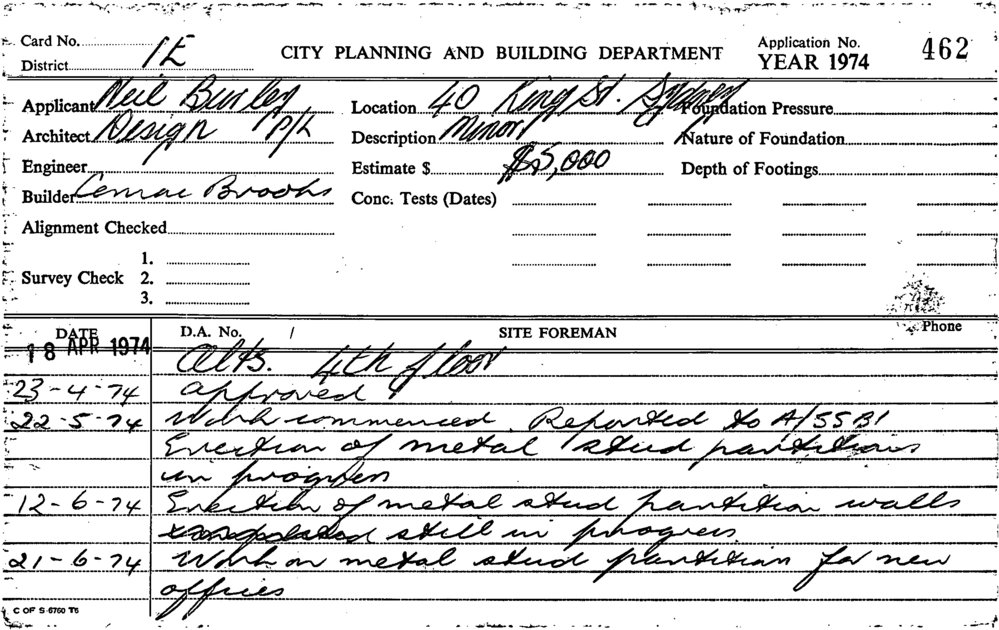 Card No.
District 1E
CITY PLANNING AND BUILDING DEPARTMENT
Application No. 462
YEAR 1974
Applicant Neil Burley Location 40 King St. Sydney Foundation Pressure
Architect Design P/L Description Minor Nature of Foundation
Engineer Estimate $ $5,000 Depth of Footings
Builder Brooks Conc. Tests (Dates)
Alignment Checked
1.
Survey Check 2.
3.
DATE D.A. No. / SITE FOREMAN Phone
18 APR 1974 Alts. 4th floor
23-4-74 Approved
22-5-74 Work commenced. Reported to A/SSBI
Erection of metal stud partitions
in progress
12-6-74 Erection of metal stud partition walls
still in progress.
21-6-74 Work on metal stud partition for new
offices
C OF S 6760 T6